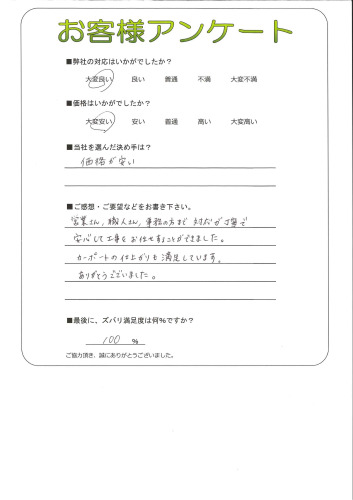 お客様アンケート
■弊社の対応はいかがでしたか？
大変良い 良い 普通 不満 大変不満
■価格はいかがでしたか？
大変安い 安い 普通 高い 大変高い
■当社を選んだ決め手は？
価格が安い
■ご感想・ご要望などをお書き下さい。
営業さん、職人さん、事務の方まで対応が丁寧で
安心して工事をお任せすることができました。
カーポートの仕上がりも満足しています。
ありがとうございました。
■最後に、ズバリ満足度は何%ですか？
100 %
ご協力頂き、誠にありがとうございました。